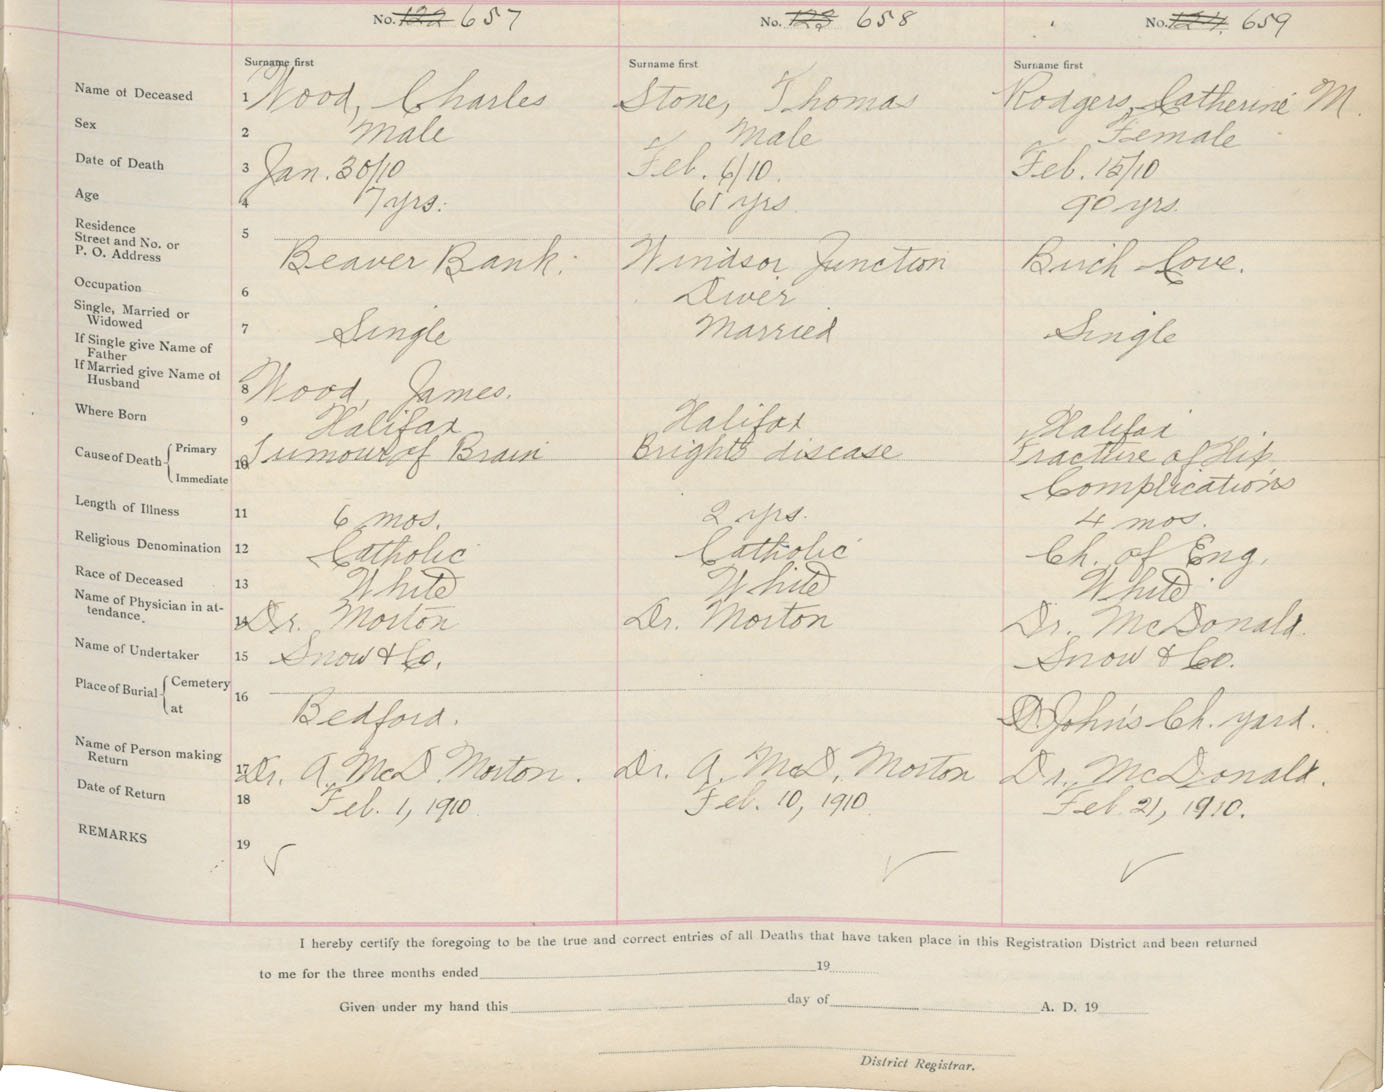 No. 122 657 No. 123 658 No. 124 659
Surname first Surname first Surname first
Name of Deceased 1 Wood, Charles Stone, Thomas Rodgers, Catherine M.
Sex 2 Male Male Female
Date of Death 3 Jan. 30/10 Feb. 6/10. Feb. 15/10
Age 4 7 yrs. 61 yrs. 90 yrs.
Residence
Street and No. or
P. O. Address 5 Beaver Bank. Windsor Junction Birch Cove.
Occupation 6 Diver
Single, Married or
Widowed 7 Single Married Single
If Single give Name of
Father
If Married give Name of
Husband 8 Wood, James.
Where Born 9 Halifax Halifax Halifax
Cause of Death { Primary 10 Tumour of Brain Brights disease Fracture of Hip
Immediate Complications
Length of Illness 11 6 mos. 2 yrs. 4 mos.
Religious Denomination 12 Catholic Catholic Ch. of Eng.
Race of Deceased 13 White White White
Name of Physician in at-
tendance. 14 Dr. Morton Dr. Morton Dr. McDonald.
Name of Undertaker 15 Snow & Co. Snow & Co.
Place of Burial { Cemetery 16
at Bedford. St John's Ch. yard.
Name of Person making
Return 17 Dr. A. McD. Morton. Dr. A. McD. Morton Dr. McDonald.
Date of Return 18 Feb. 1, 1910 Feb. 10, 1910 Feb. 21, 1910.
REMARKS 19 ✓ ✓ ✓
I hereby certify the foregoing to be the true and correct entries of all Deaths that have taken place in this Registration District and been returned
to me for the three months ended 19
Given under my hand this day of A. D. 19
District Registrar.